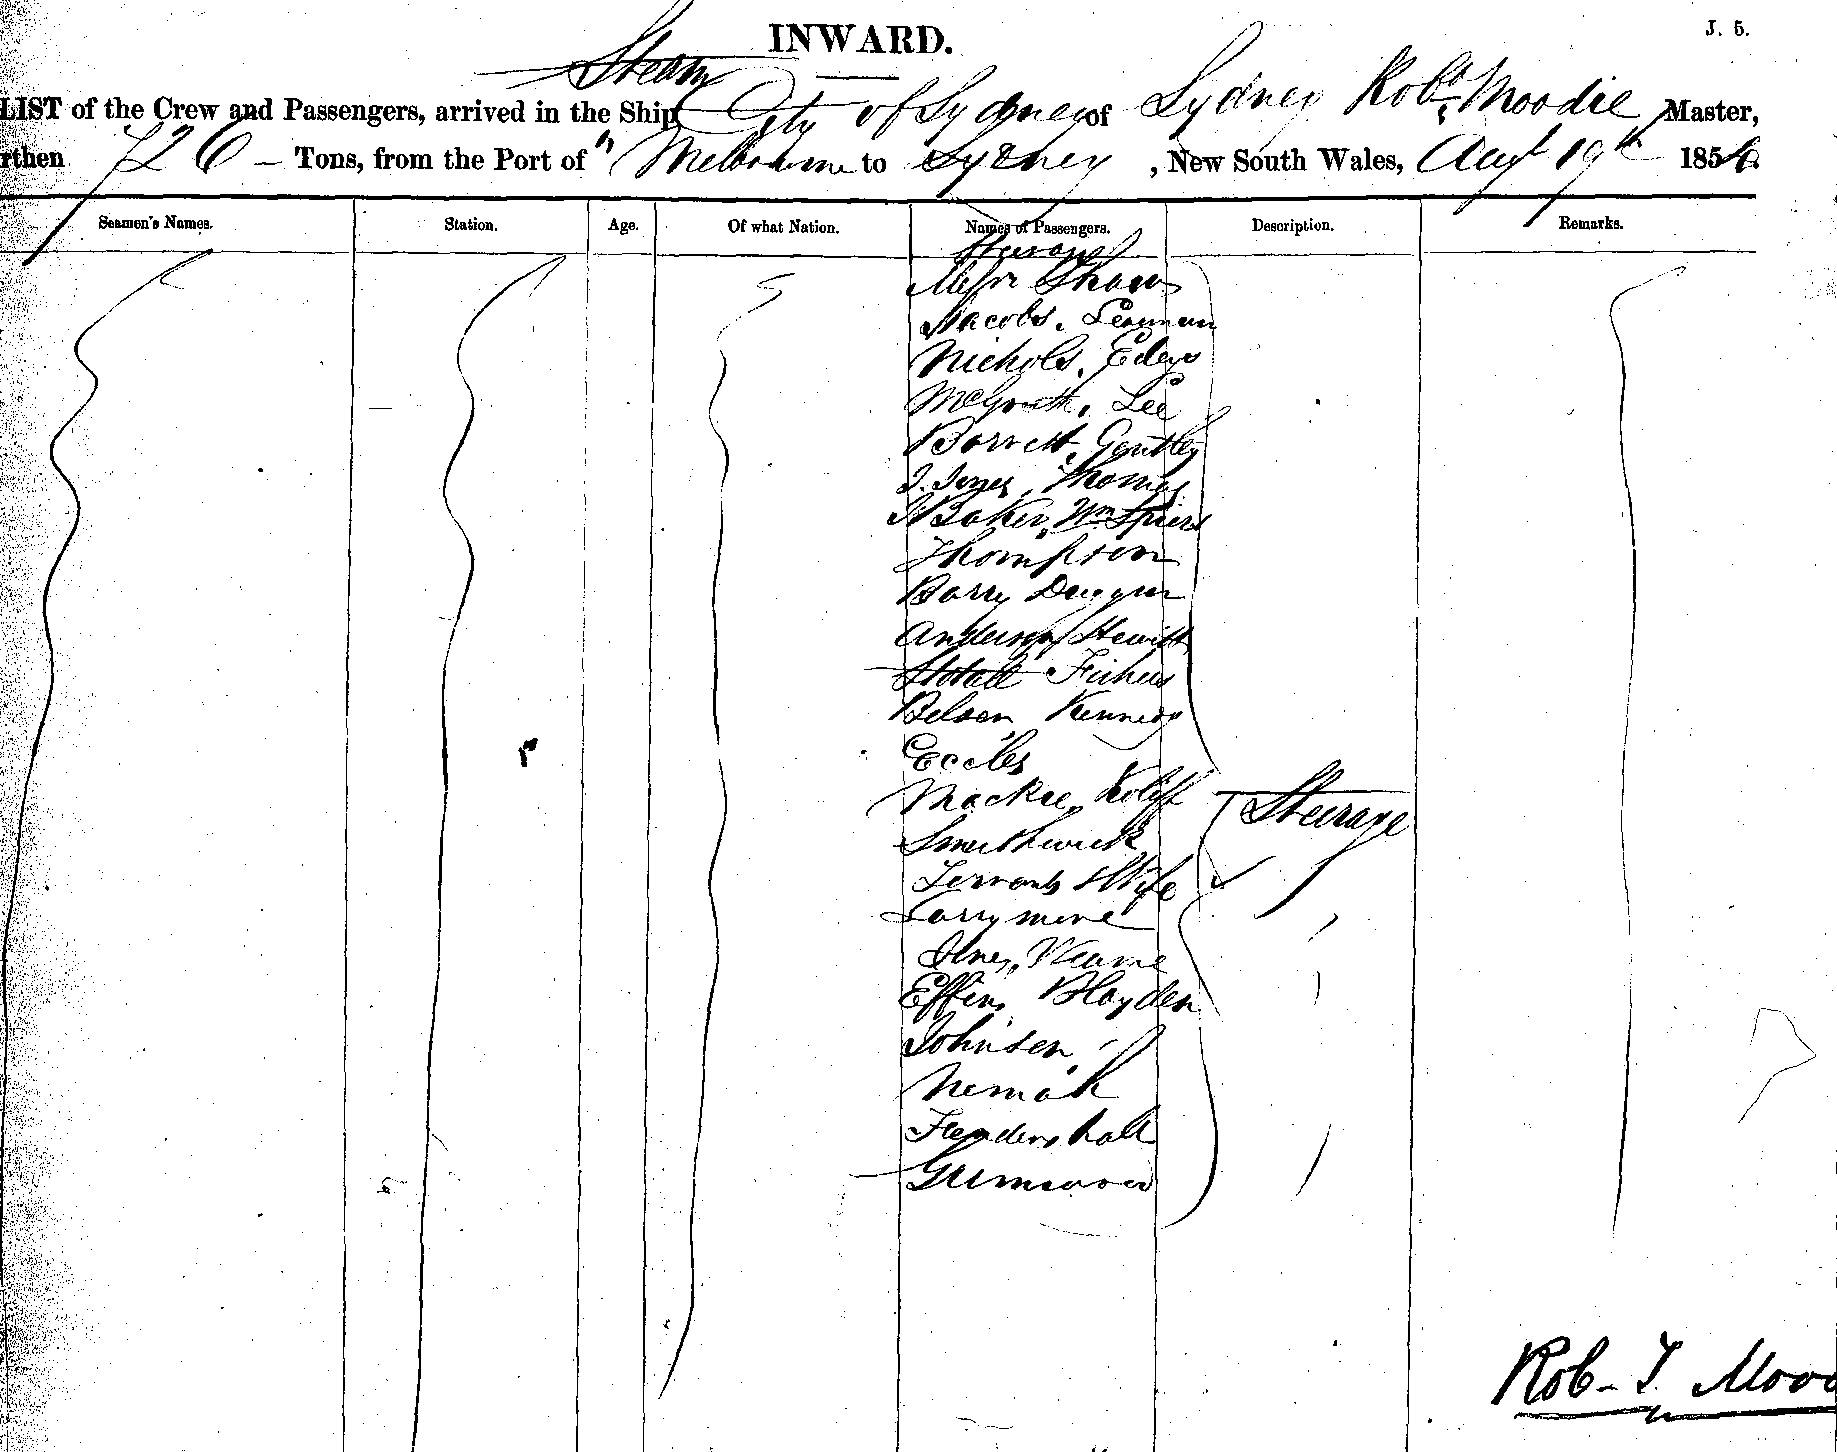 J. 5.
INWARD.
Steam
LIST of the Crew and Passengers, arrived in the Ship City of Sydney of Sydney Robt Moodie Master,
rthen 726 – Tons, from the Port of Melbourne to Sydney, New South Wales, Augt 19th 1856
Seamen's Names. Station. Age. Of what Nation. Names of Passengers. Description. Remarks.
Steerage
Messrs Shaw
Jacobs, Seaman
Nichols, Edego
McGrath, Lee
Barrett, Gentley
J. Jones, Thomas
Baker, Wm Spiers
Thompson
Barry
Anderson, Hewitt
Fisher
Belson Kennedy
Eccles
Mackie,
Steerage
Smithwick
& Wife
Larrymore
Effin, Hayden
Johnson
Hendershall
Rob. T. Mood